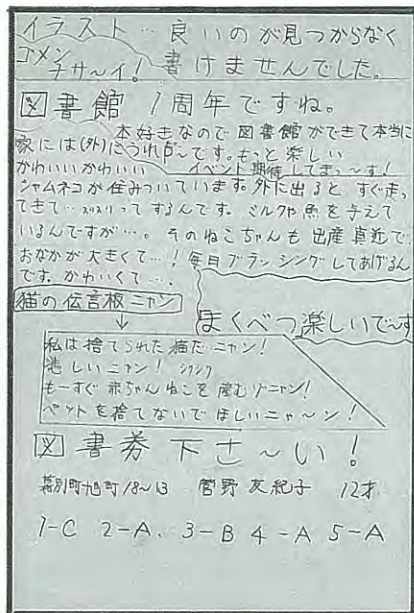 イラスト…良いのが見つからなく
ゴメンナサ~イ!書けませんでした。
図書館 1周年ですね。
本好きなので図書館ができて本当に
うれぴ~です。もっと楽しい
イベント期待してまっ~す!
家には(外)に
かわいいかわいい
シャムネコが住みついています。外に出ると すぐ走っ
てきて…スリスリってするんです。ミルクや魚を与えて
いるんですが…。そのねこちゃんも出産真近で
おなかが大きくて…!毎日ブラッシングしてあげるん
です。かわいくて…。
猫の伝言板ニャン
まくべつ楽しいで~す
私は捨てられた猫だニャン!
悲しいニャン! シクシク
もーすぐ赤ちゃんねこを産むゾニャン!
ペットを捨てないでほしいニャ~ン!
図書券下さ~い!
幕別町旭町18~13 菅野友紀子 12才
1-C 2-A. 3-B 4-A 5-A